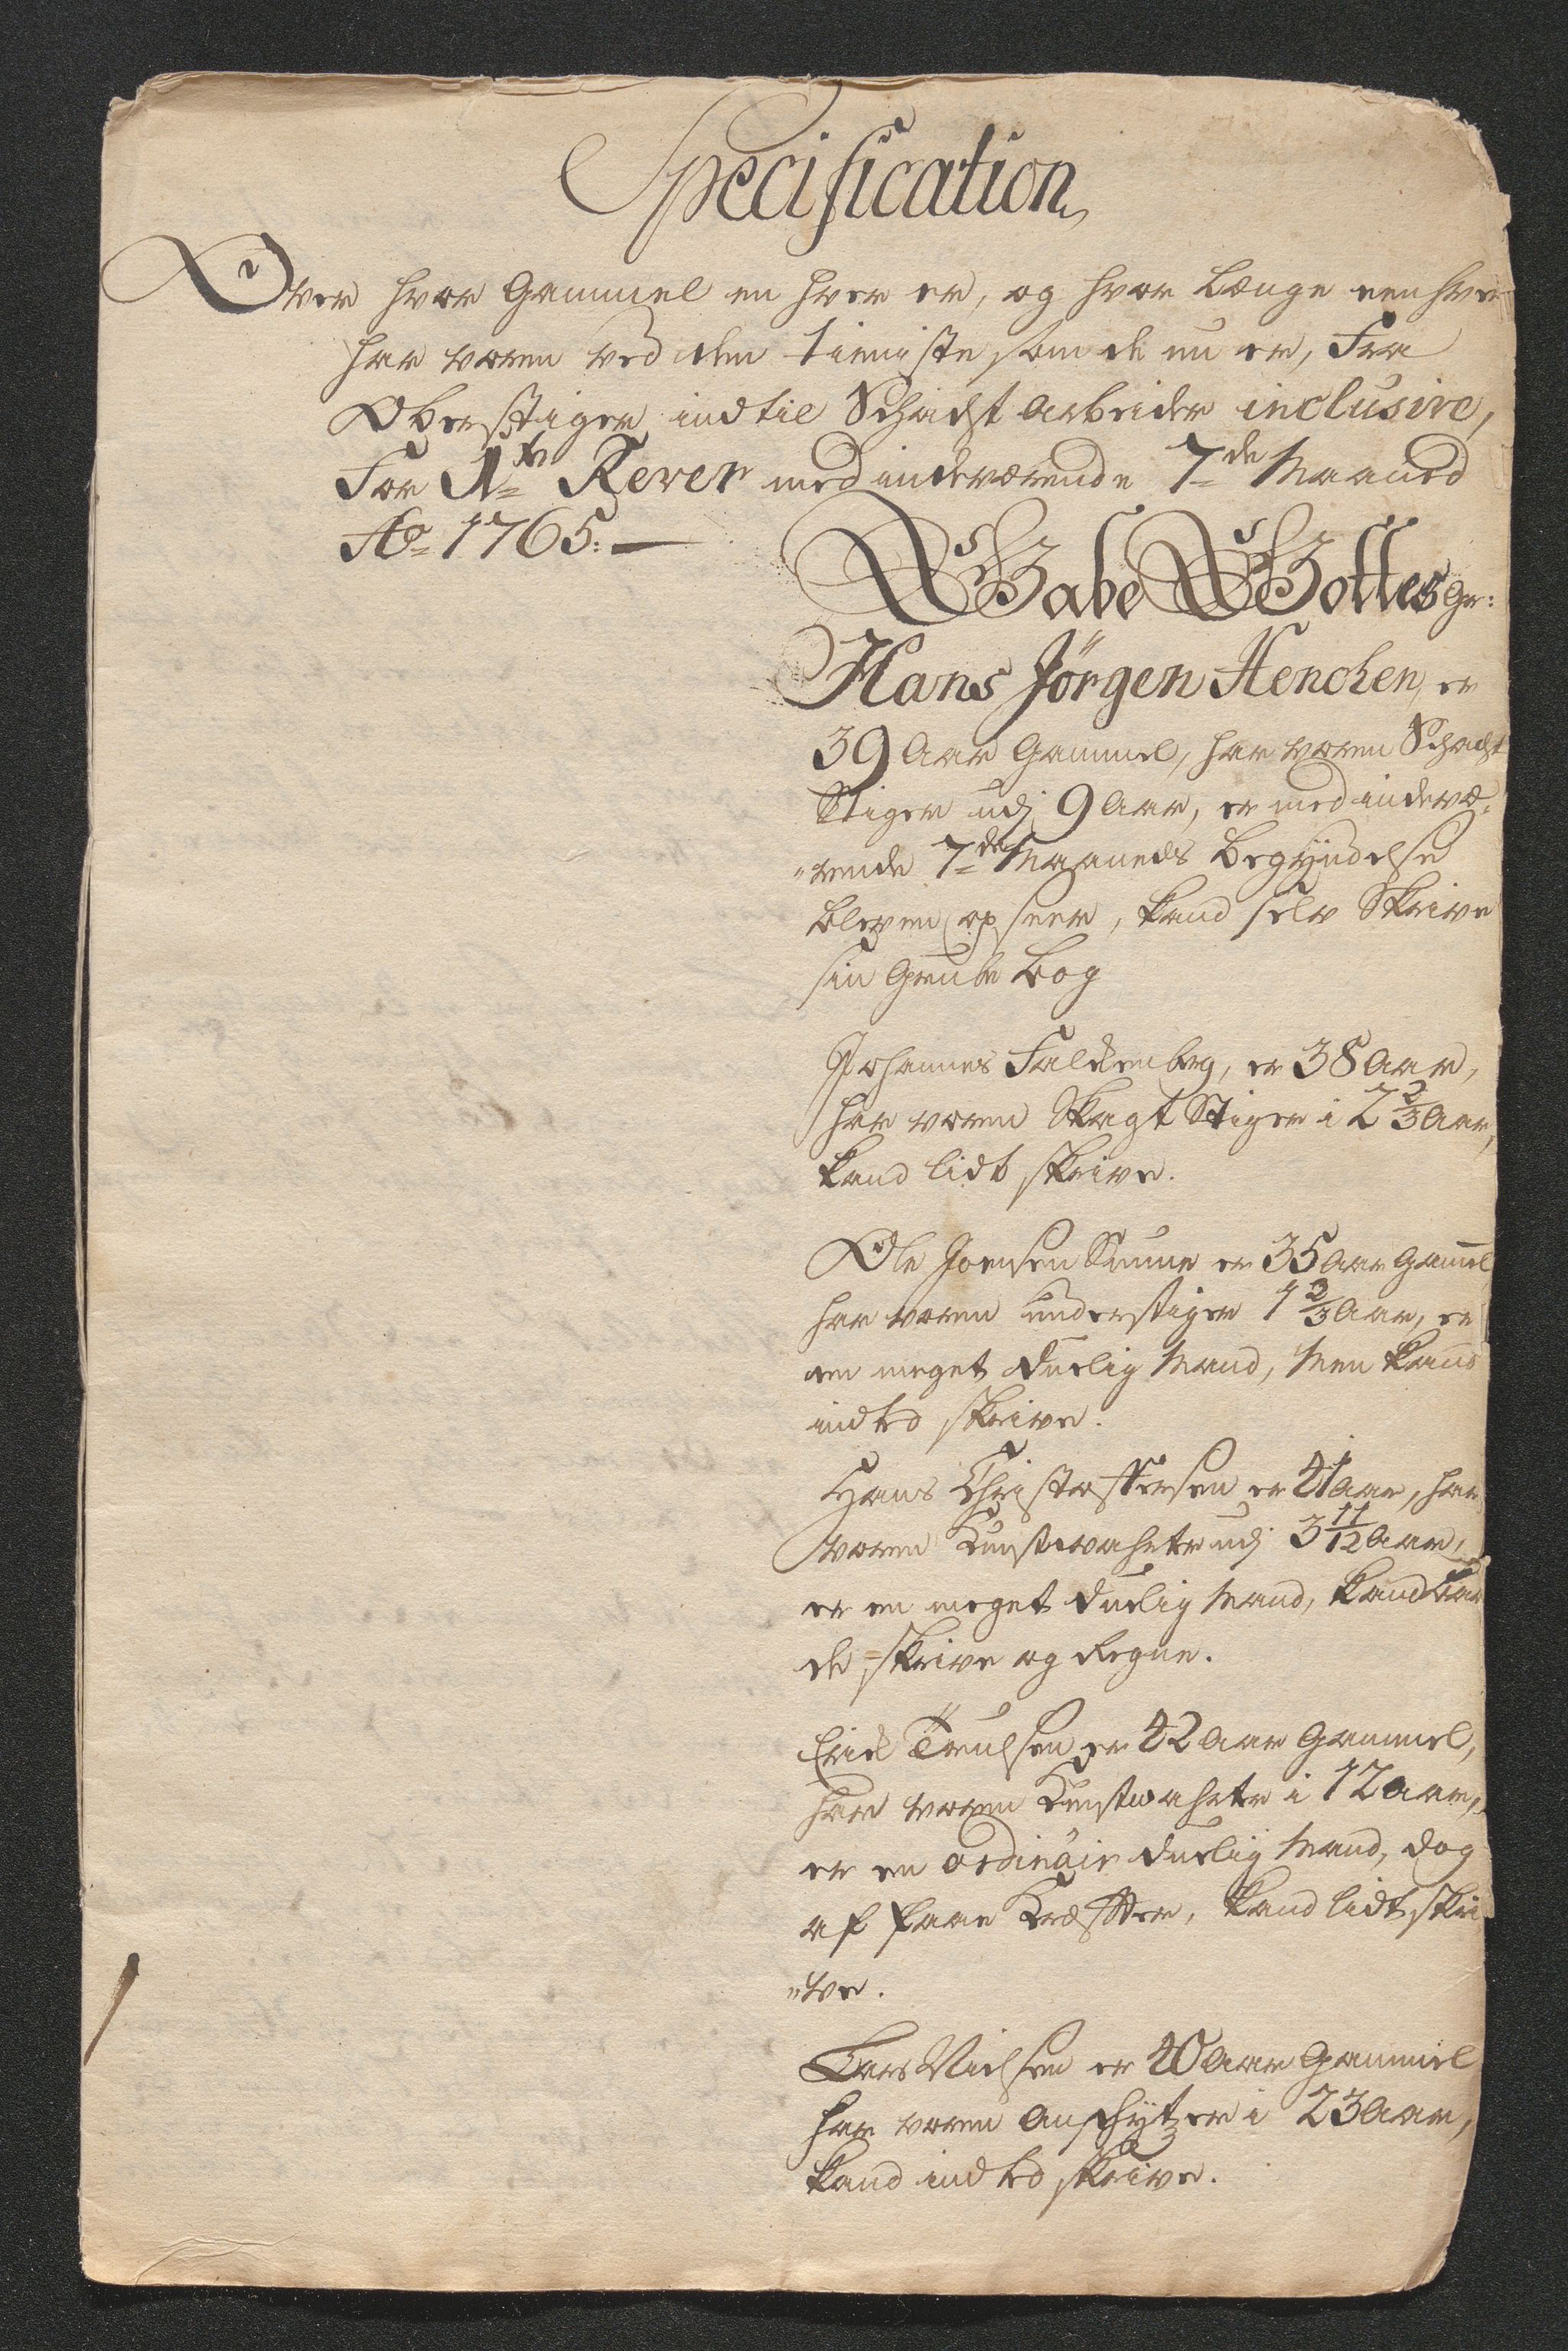 Specification
Over hvor Gammel en hver er, og hvor længe een hver
har voren ved den tieniste som de nu er, Fra
Oberstiger indtil Schackt arbeider inclusive,
For 1te Rever med indeværende 7de Maaned
Ao 1765:
Gabe Gottes gr:
Hans Jörgen Henchen er
39 Aar Gammel, har voren Schacht
Stiger udj 9 Aar, er med indevæ-
"rende 7de Maaneds Begÿndelse
bleven opseer, kand selv Skrive
sin Grube bog
Johannes Falckenberg, er 38 Aar,
har voren Skagt Stiger i 2 2/3 Aar,
kand lidt skrive.
Ole Joensen er 35 Aar Gam̄el
har voren understiger 1 2/3 Aar, er
en meget duelig Mand, Men kand
indted skrive.
Hans Christoffersen er 41 Aar, har
voren Kunstwahrter udj 3 11/12 Aar,
er en meget duelig Mand, kand baa
de skrive og Regne.
Erick Truelsen er 42 Aar Gammel,
har voren Kunstwahrter i 12 Aar,
er en ordinair duelig Mand, dog
af faae Kræffter, kand lidt skri
"ve.
Lars Nielsen er 40 Aar Gammel
har voren Anschÿtzer i 23 Aar,
kand indted skrive.